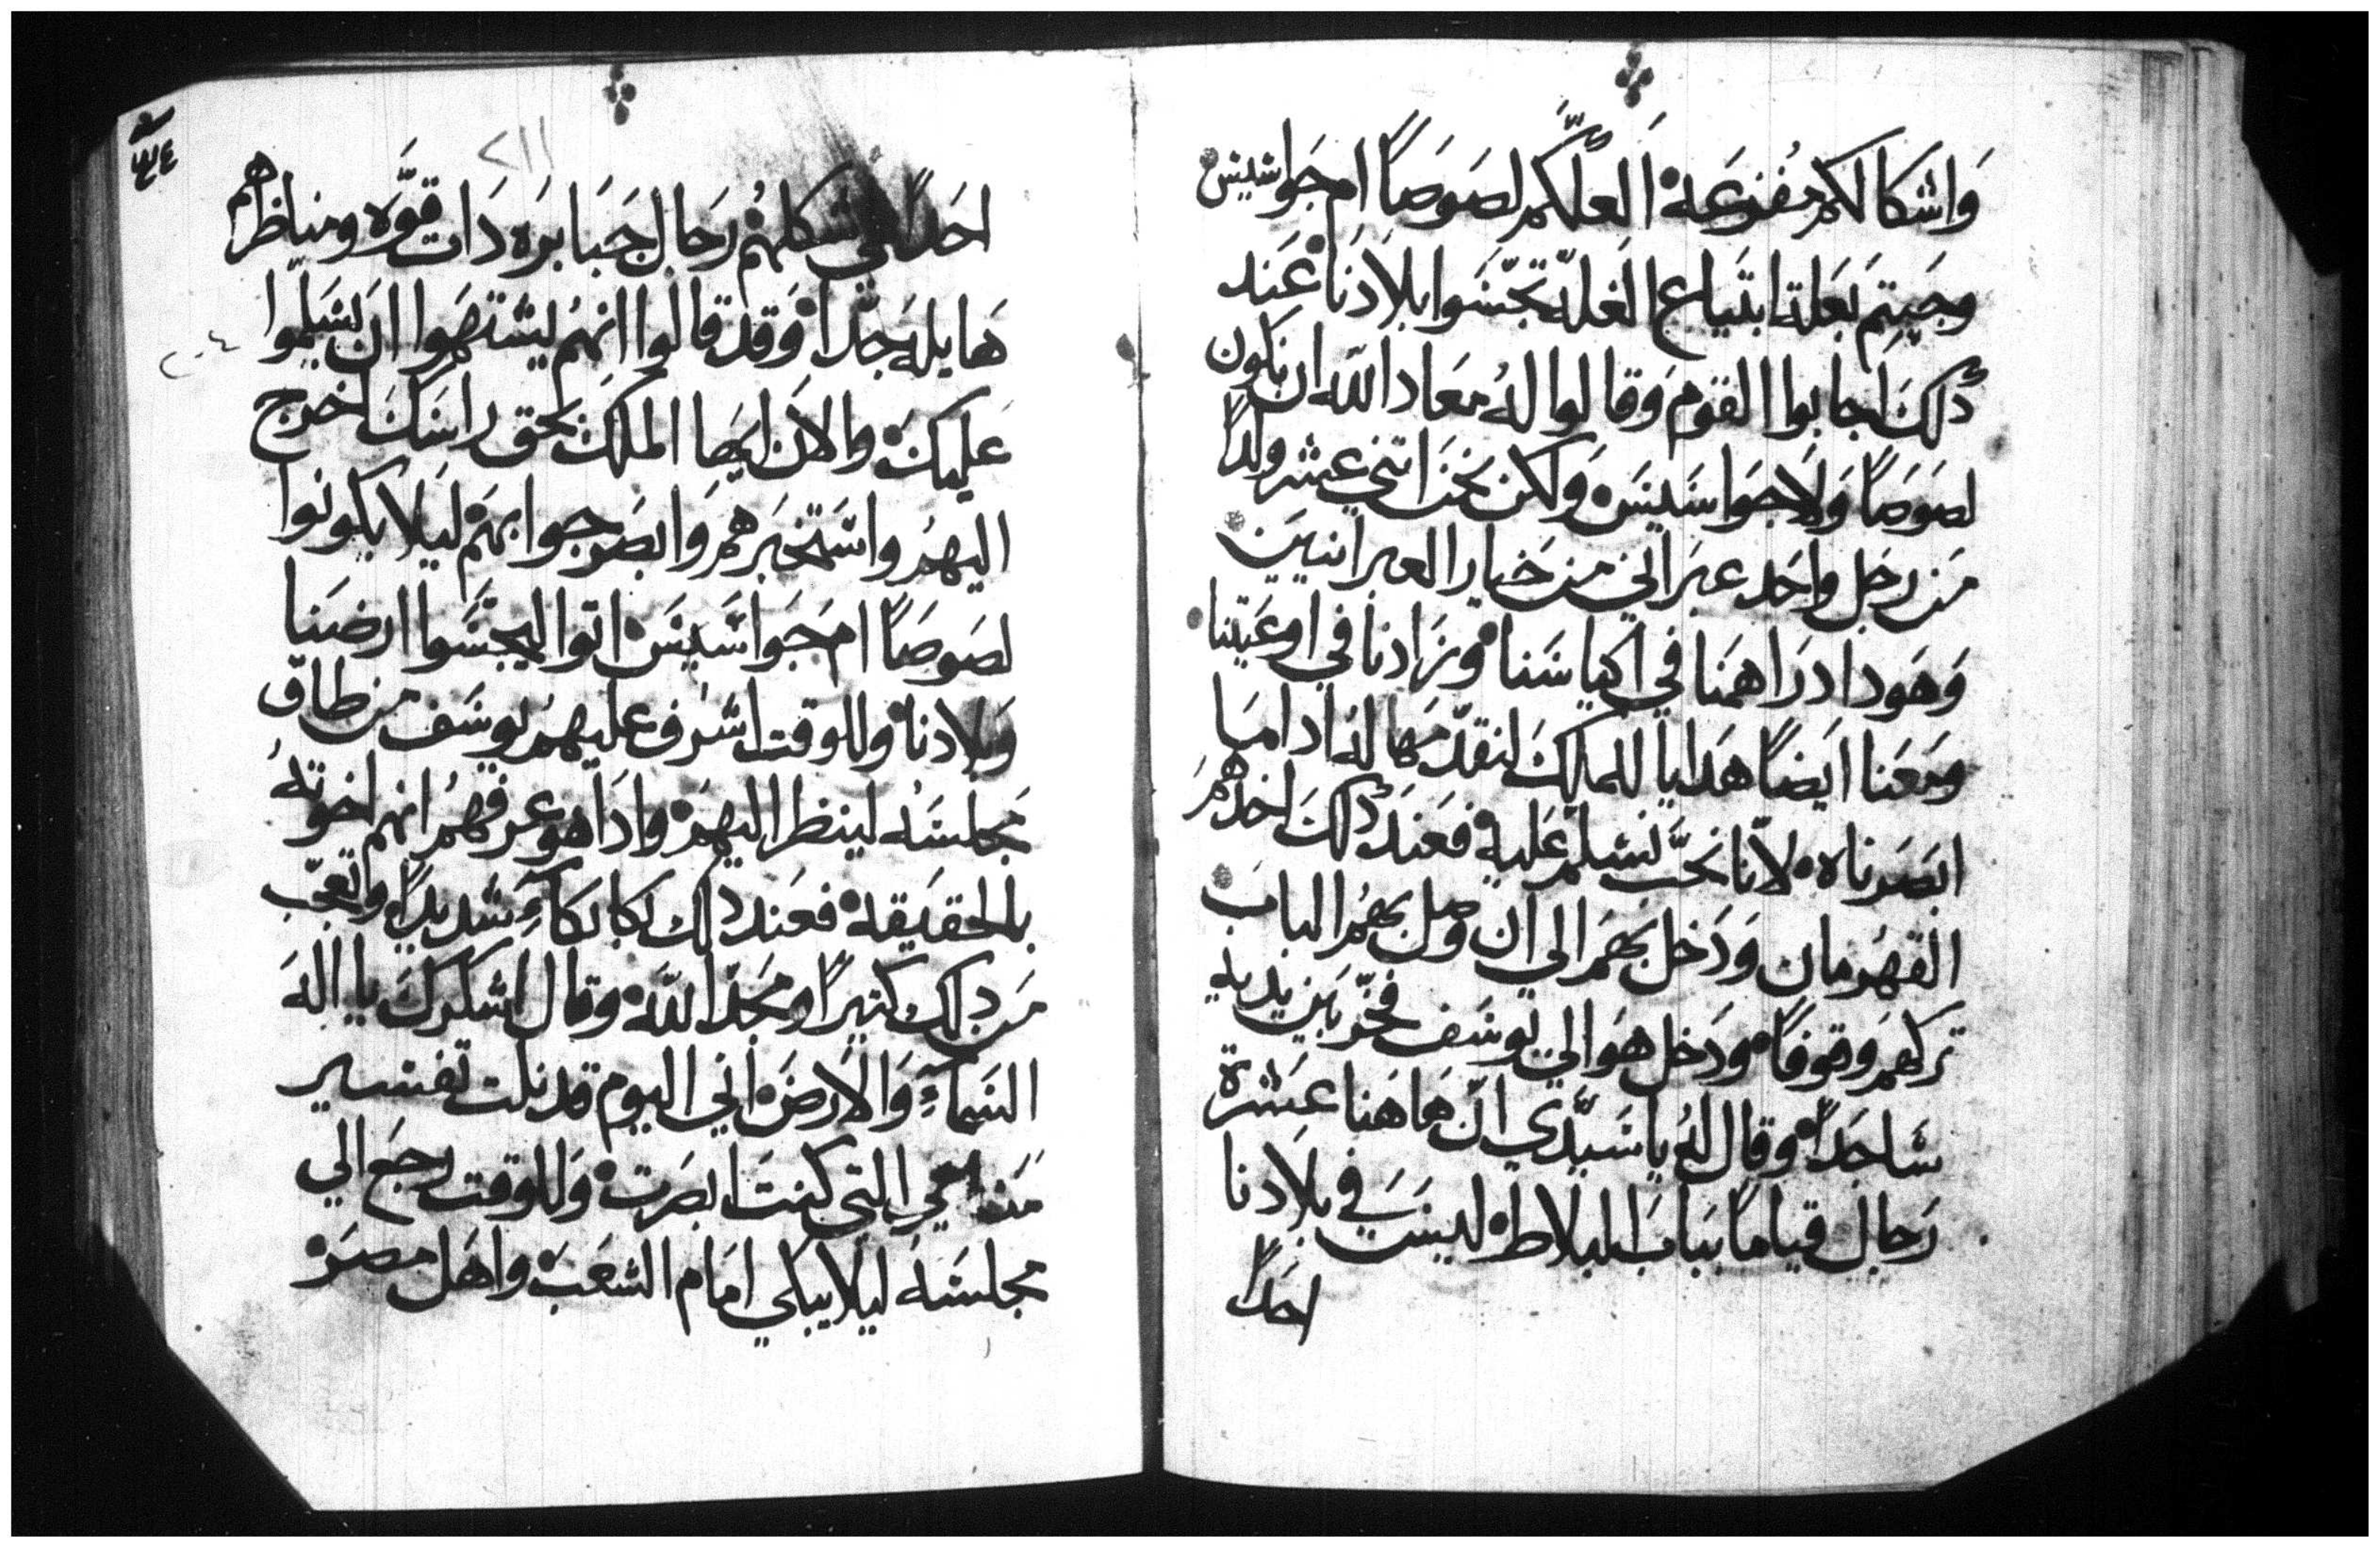 وَاشكالكم مُفزعَة العلّكم لصَوصًا ام جَواسيسْ
وجَيتم بَعلة ابتَياع الغلّه تجّسَوا بلادنا عَند
دلكَ اجابوا القوم وَقالوا لهُ معَاد الله ان نكون
لصَوصًا وَلا جوَاسَيسَ وَلكن نحَن اتني عشر ولدًا
مَن رجَل واحَد عبَراني من خيار العبرانيين
وَهَودا درَاهمَنا في اكياسَنا وزَادنا في اوعَيتنا
ومَعَنا ايَضًا هَدايا للملكَ لنقدّمَها لهُ ادا مَا
ابصَرناه لانّا نحَبّ نسَلم عَليهْ فعَند دلكَ اخدهمَ
القهَرمان وَدَخل بهَم الي ان وصل بهمُ البابَ
تركهمَ وقوفًا ودَخل هوَ الي يوسَف فخّر بَين يديه
سَاجدًا وقال لهُ يا سَيّدي انّ هَاهَنا عَشرة
رَجال قيامًا ببَابَ البلاطْ ليسَ في بلادنا
احَدًا
٢١١
احَدًا في شكلهمْ رَجال جَبَابرَه دَات قوَّه ومناظرهم
هَايله جَدّاْ وَقد قالوا انهمُ يشتهَوا ان يسَلّموا
عَليكَ والان ايهَا الملكَ بحَق راسَكَ اخرج
اليهمُ واسَتخبَرهمَ وَابصَر جوابهَم ليلا يكونوا
لصَوصًا ام جَوَاسَيسَ اتوا ليجسَّوا ارضَنا
وَبلادنا وللوقت اشرَف عليهمُ يوسَف من طاق
مَجلسَهُ لينظر اليهمَ وادَا هوَ عرفهمُ انهم اخوتهُ
بالحقَيقهْ فعَند دلك بكا بكآءً شَديدًا وتعَجّب
مَن دلك كتيرًا ومجَد اللهَ وقال اشكركَ يا الهَ
السَمآءِ وَالارضَ اني اليوم قد نلت تفسَير
مَنامي التي كنتَ ابصَرت وَللوقت رجَع الي
مجلسَهُ ليَلا يبكي امَام الشعَبَ واهَل مصَرْ